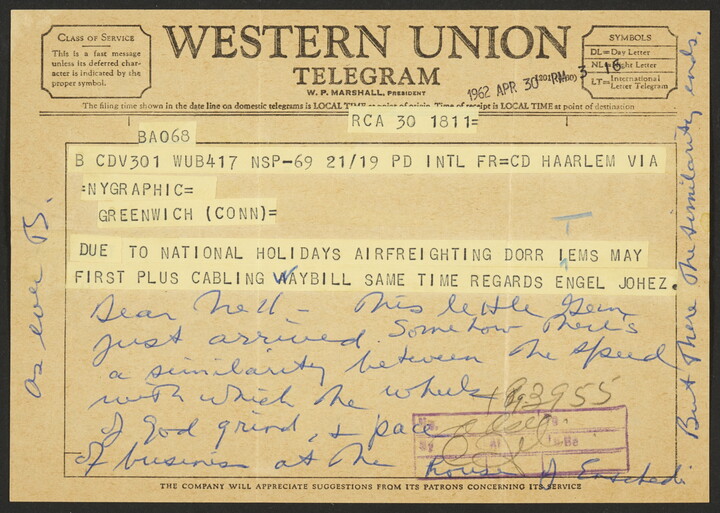 CLASS OF SERVICE
This is a fast message
unless its deferred char-
acter is indicated by the
proper symbol.
WESTERN UNION
TELEGRAM
W. P. MARSHALL, PRESIDENT
1962 APR 30 PM 3 16
SYMBOLS
DL=Day Letter
NL=Night Letter
LT=International Letter Telegram
The filing time shown in the date line on domestic telegrams is LOCAL TIME at point of origin. Time of receipt is LOCAL TIME at point of destination
RCA 30 1811=
BA068
B CDV301 WUB417 NSP-69 21/19 PD INTL FR=CD HAARLEM VIA
=NYGRAPHIC=
GREENWICH (CONN)=
DUE TO NATIONAL HOLIDAYS AIRFREIGHTING DORR IEMS MAY
T
FIRST PLUS CABLING WAYBILL SAME TIME REGARDS ENGEL JOHEZ.
Dear Nell - This little Gem
just arrived. Somehow there's
a similarity between the speed
with which the wheels
of God grind, & pace
of business at the house of Enschedé
But there the similarity ends.
as ever B.
3955
THE COMPANY WILL APPRECIATE SUGGESTIONS FROM ITS PATRONS CONCERNING ITS SERVICE